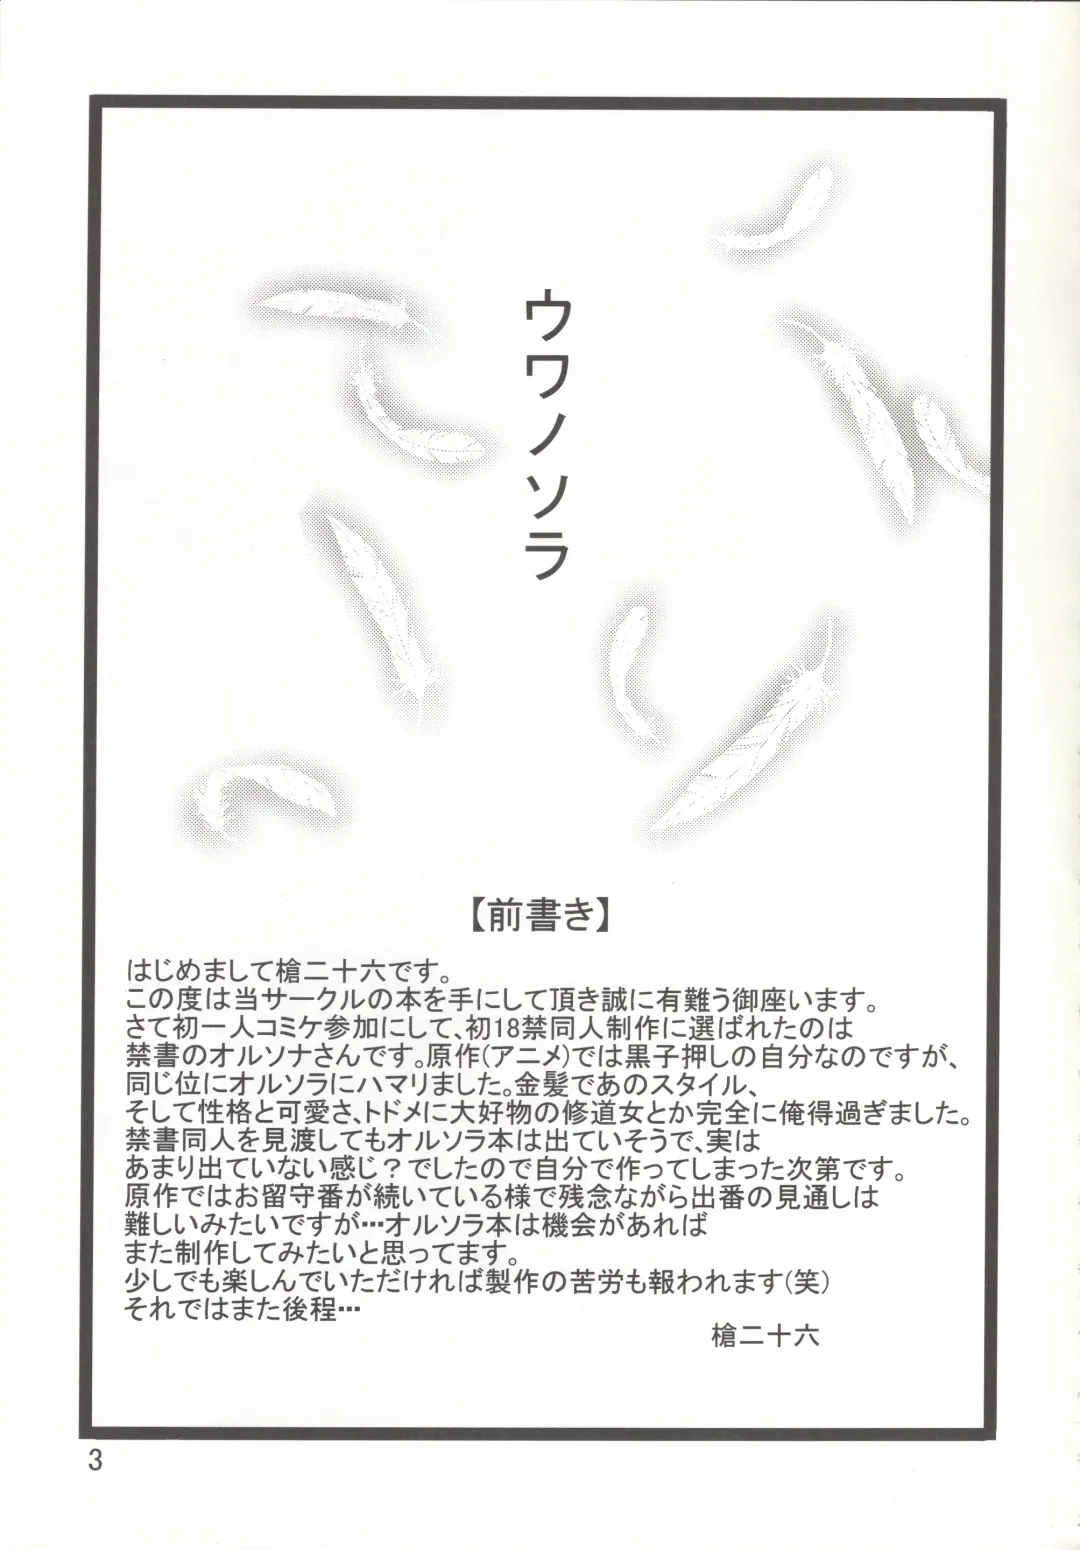 ウワノソラ
【前書き】
はじめまして槍二十六です。
この度は当サークルの本を手にして頂き誠に有難う御座います。
さて初一人コミケ参加にして、初18禁同人制作に選ばれたのは
禁書のオルソナさんです。原作(アニメ)では黒子押しの自分なのですが、
同じ位にオルソラにハマリました。金髪であのスタイル、
そして性格と可愛さ、トドメに大好物の修道女とか完全に俺得過ぎました。
禁書同人を見渡してもオルソラ本は出ていそうで、実は
あまり出ていない感じ?でしたので自分で作ってしまった次第です。
原作ではお留守番が続いている様で残念ながら出番の見通しは
難しいみたいですが…オルソラ本は機会があれば
また制作してみたいと思ってます。
少しでも楽しんでいただければ製作の苦労も報われます(笑)
それではまた後程…
槍二十六
3